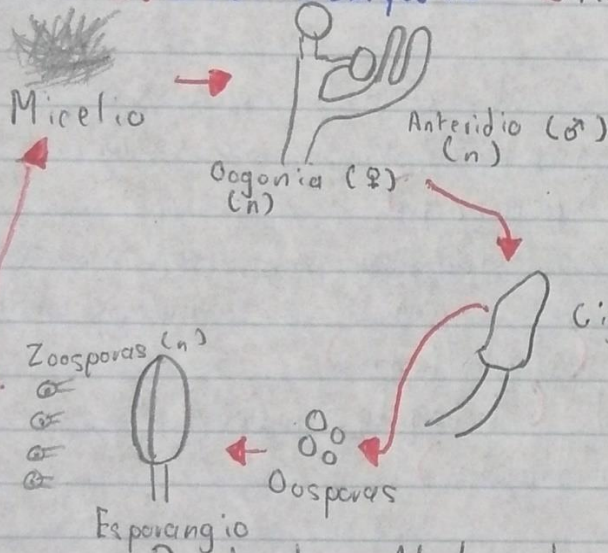 Micelio
Anteridio (♂)
(n)
Oogonia (♀)
(n)
Zoosporas (n)
Oosporas
Esporangio